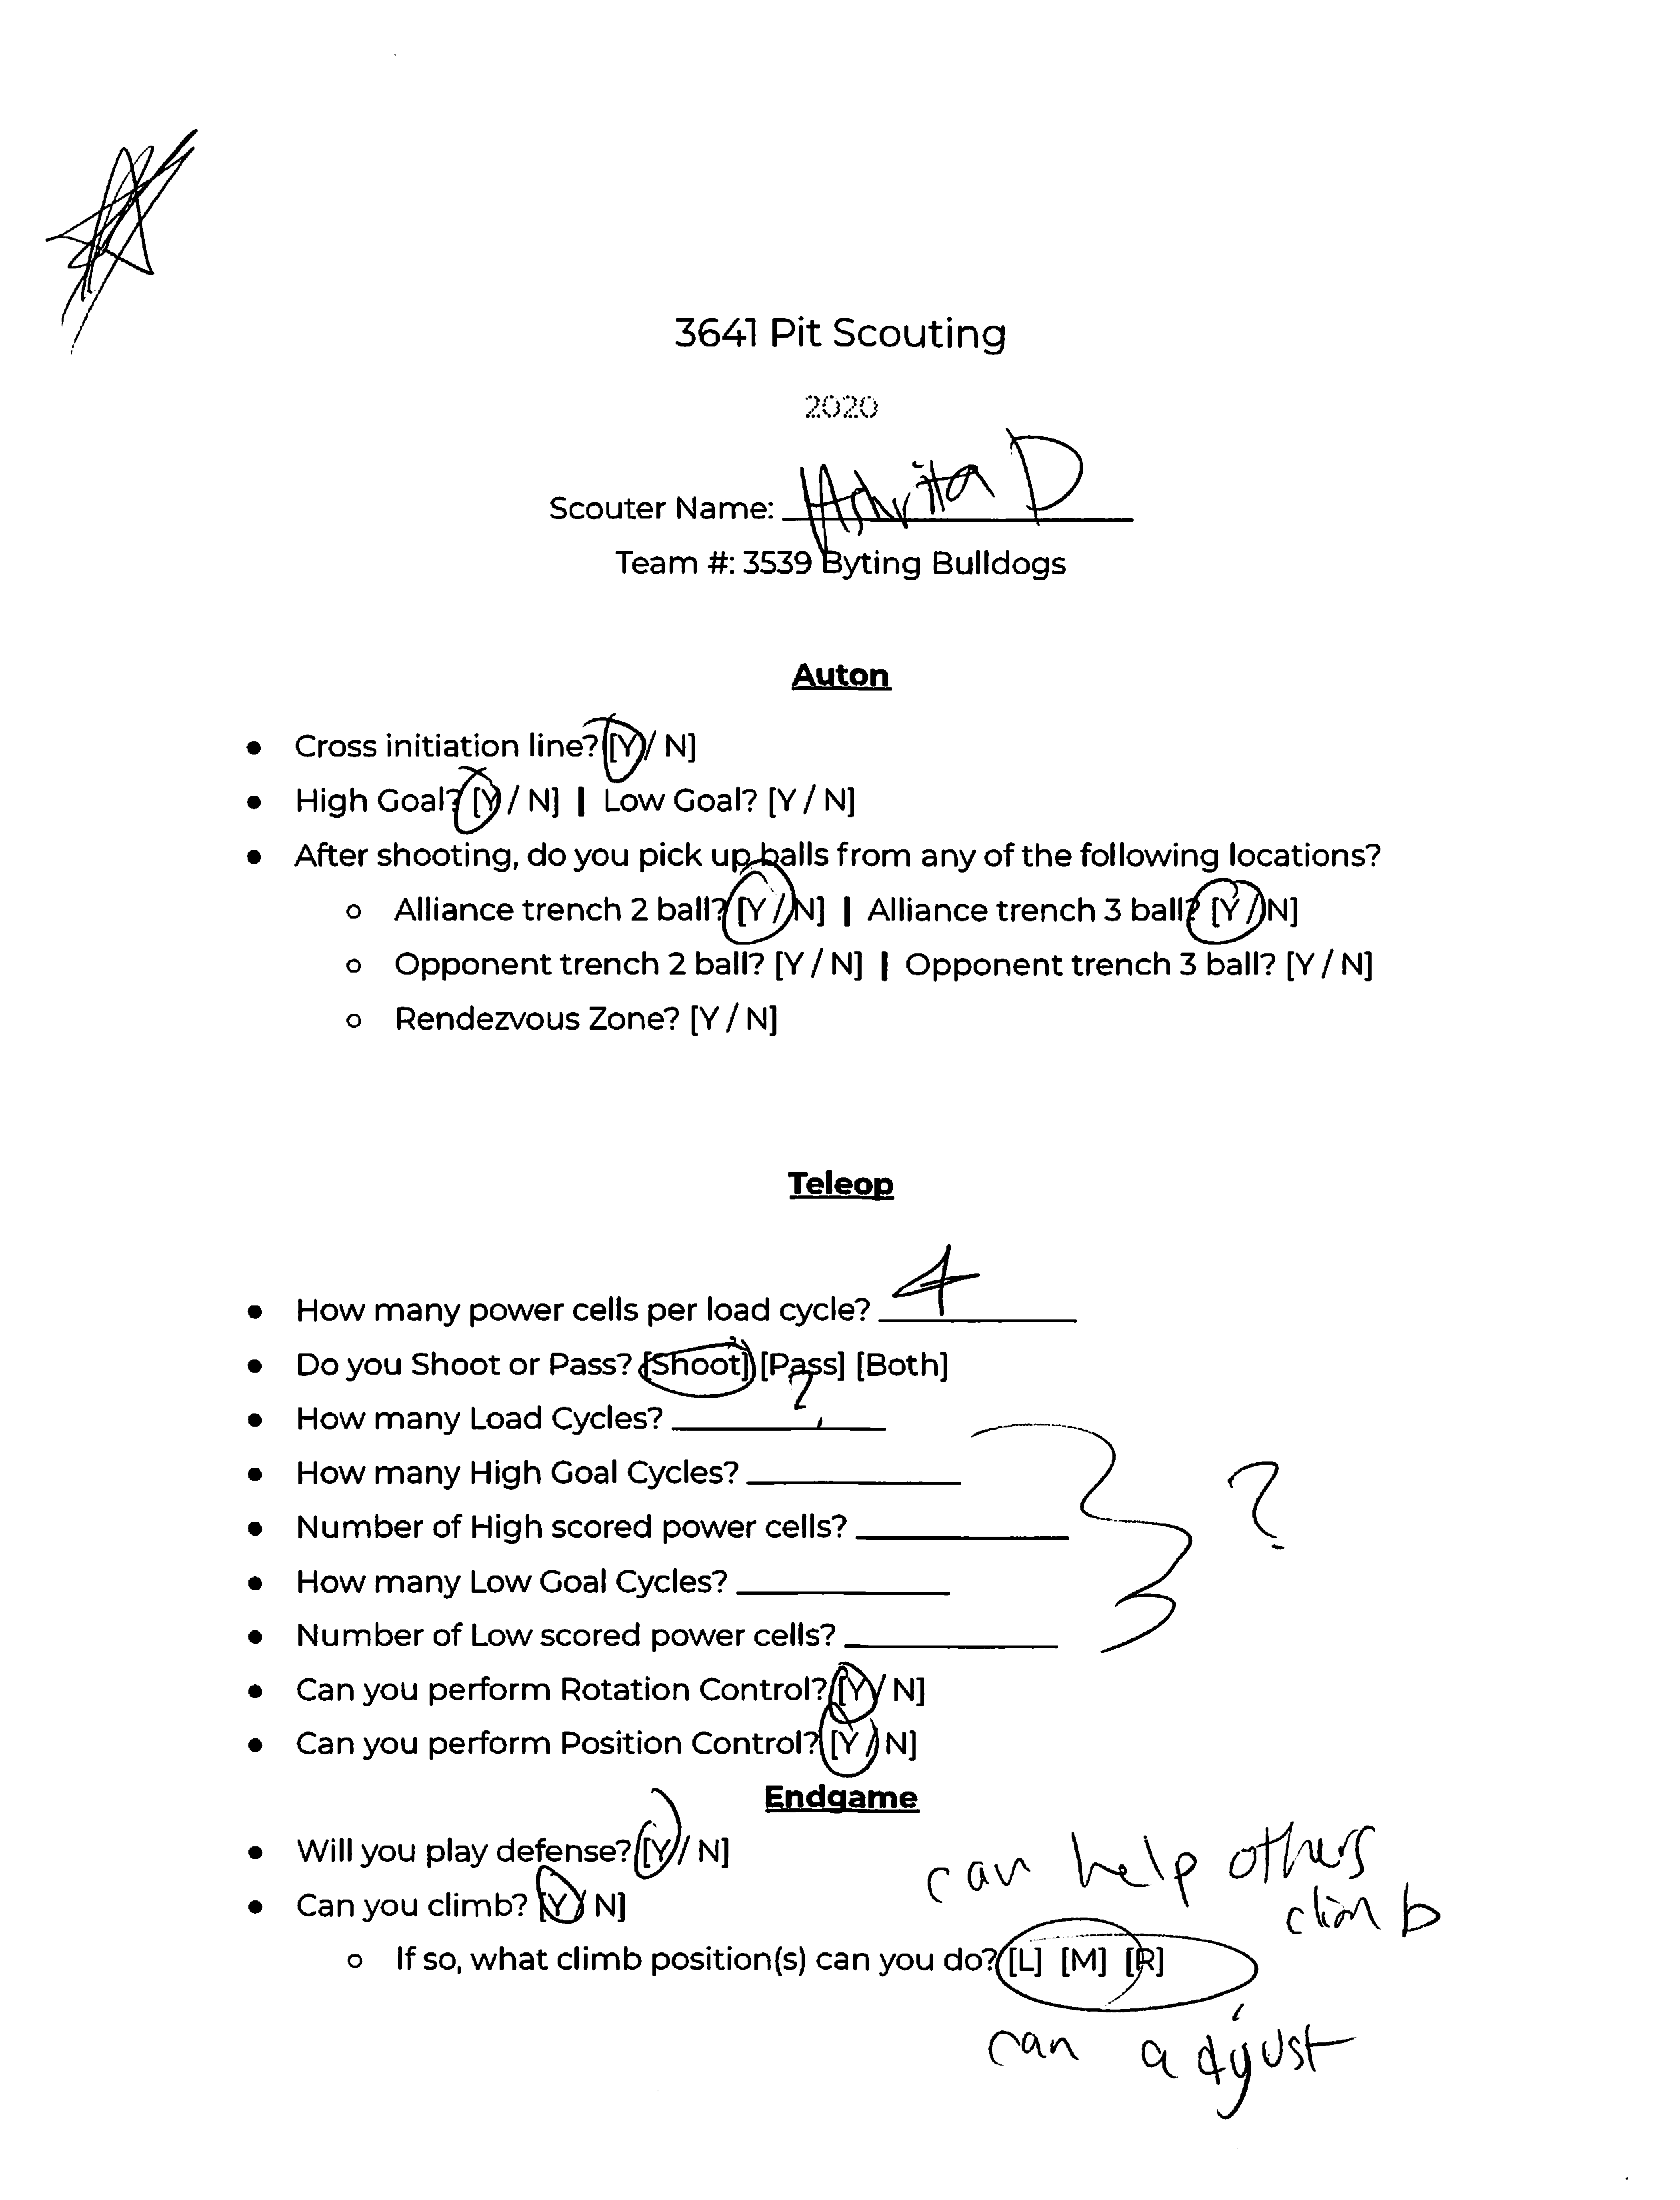 3641 Pit Scouting
2020
Scouter Name: Ashrita D
Team #: 3539 Byting Bulldogs
Auton
● Cross initiation line? [Y / N]
● High Goal? [Y / N] | Low Goal? [Y / N]
● After shooting, do you pick up balls from any of the following locations?
○ Alliance trench 2 ball? [Y / N] | Alliance trench 3 ball? [Y / N]
○ Opponent trench 2 ball? [Y / N] | Opponent trench 3 ball? [Y / N]
○ Rendezvous Zone? [Y / N]
Teleop
● How many power cells per load cycle? 4
● Do you Shoot or Pass? [Shoot] [Pass] [Both]
● How many Load Cycles? ?
● How many High Goal Cycles? ?
● Number of High scored power cells?
● How many Low Goal Cycles?
● Number of Low scored power cells?
● Can you perform Rotation Control? [Y / N]
● Can you perform Position Control? [Y / N]
Endgame
● Will you play defense? [Y / N]
can help others
● Can you climb? [Y / N]
climb
○ If so, what climb position(s) can you do? [L] [M] [R]
can adjust